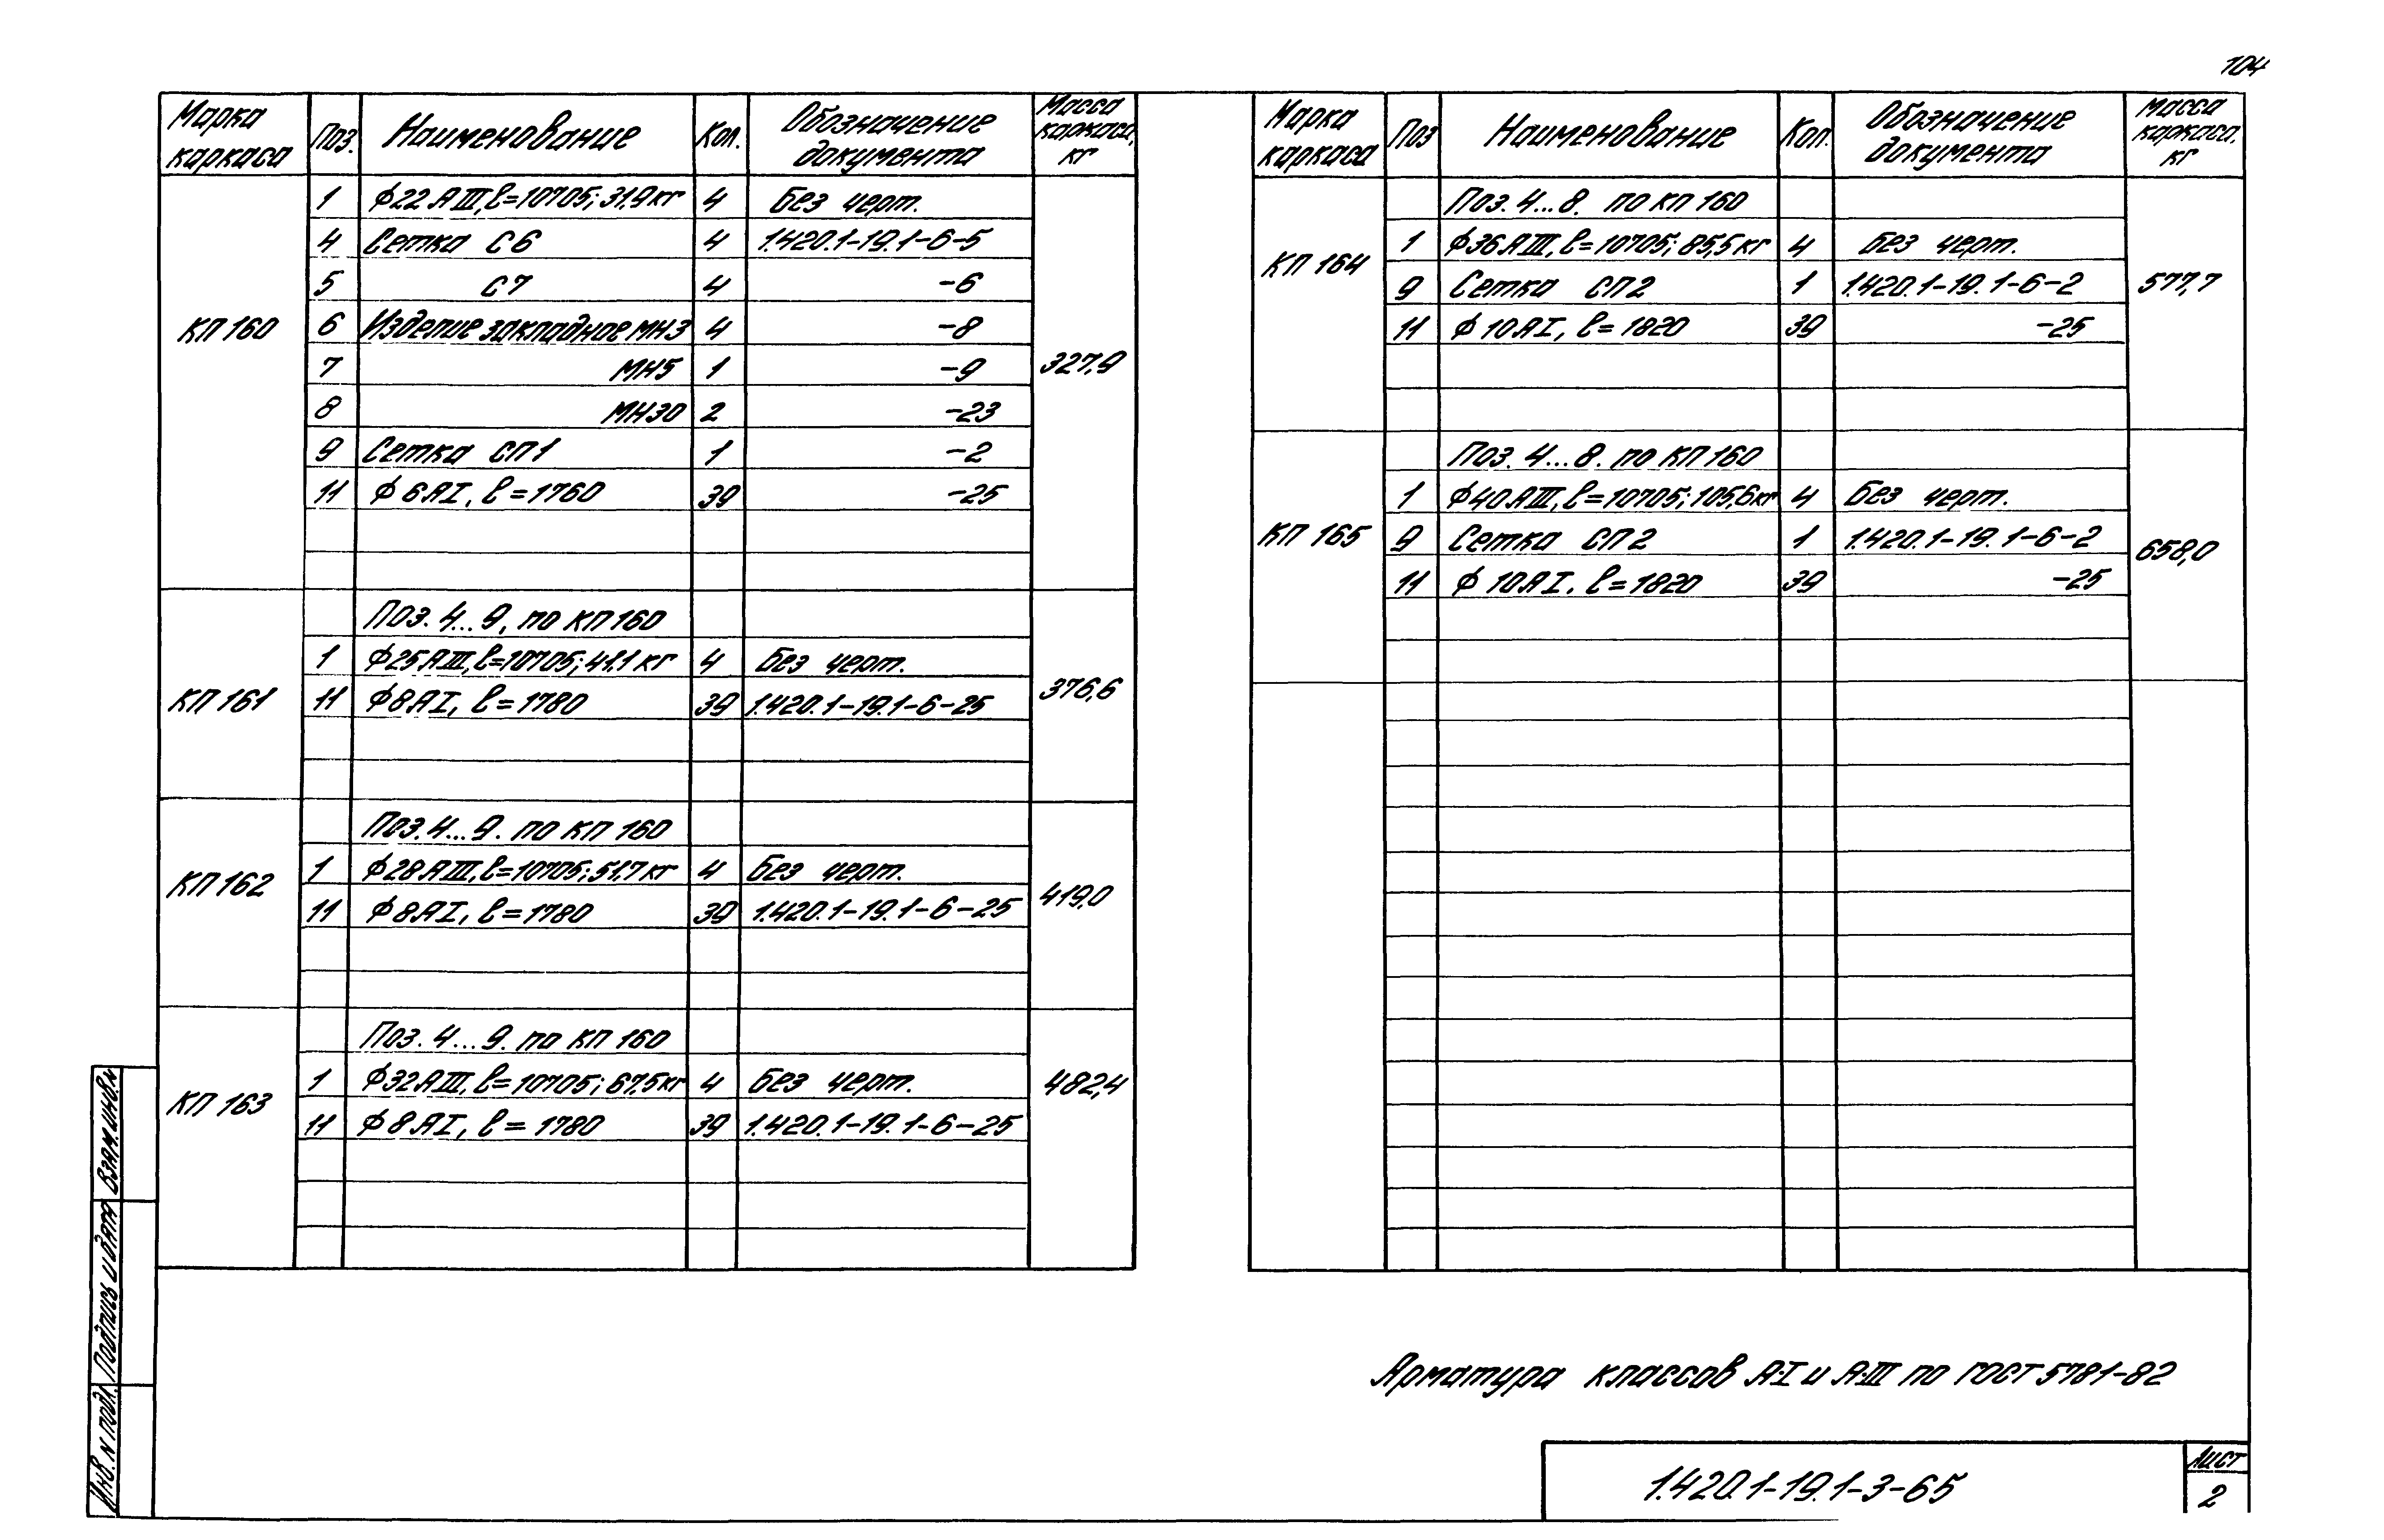 104
Марка каркаса Поз. Наименование Кол. Обозначение документа Масса каркаса, кг
КП 160 327,9
1 ф22 АIII, ℓ=10705; 31,9 кг 4 Без черт.
4 Сетка С6 4 1.420.1-19.1-6-5
5 С7 4 -6
6 Изделие закладное МН3 4 -8
7 МН5 1 -9
8 МН30 2 -23
9 Сетка СП1 1 -2
11 ф 6АI, ℓ=1760 39 -25
КП 161 376,6
Поз. 4...9, по КП 160
1 ф25 АIII, ℓ=10705; 41,1 кг 4 Без черт.
11 ф8АI, ℓ=1780 39 1.420.1-19.1-6-25
КП 162 419,0
Поз. 4...9. по КП 160
1 ф28 АIII, ℓ=10705; 51,7 кг 4 Без черт.
11 ф8АI, ℓ=1780 39 1.420.1-19.1-6-25
КП 163 482,4
Поз. 4...9. по КП 160
1 ф32 АIII, ℓ=10705; 67,5 кг 4 Без черт.
11 ф8АI, ℓ=1780 39 1.420.1-19.1-6-25
Марка каркаса Поз Наименование Кол. Обозначение документа Масса каркаса, кг
КП 164 577,7
Поз. 4...8. по КП 160
1 ф36 АIII, ℓ=10705; 85,5 кг 4 Без черт.
9 Сетка СП2 1 1.420.1-19.1-6-2
11 ф 10АI, ℓ=1820 39 -25
КП 165 658,0
Поз. 4...8. по КП 160
1 ф40 АIII, ℓ=10705; 105,6 кг 4 Без черт.
9 Сетка СП2 1 1.420.1-19.1-6-2
11 ф 10АI, ℓ=1820 39 -25
Арматура классов А-I и А-III по ГОСТ 5781-82
1.420.1-19.1-3-65
Лист
2
Взам.инв.N
Подпись и дата
Инв. N подл.